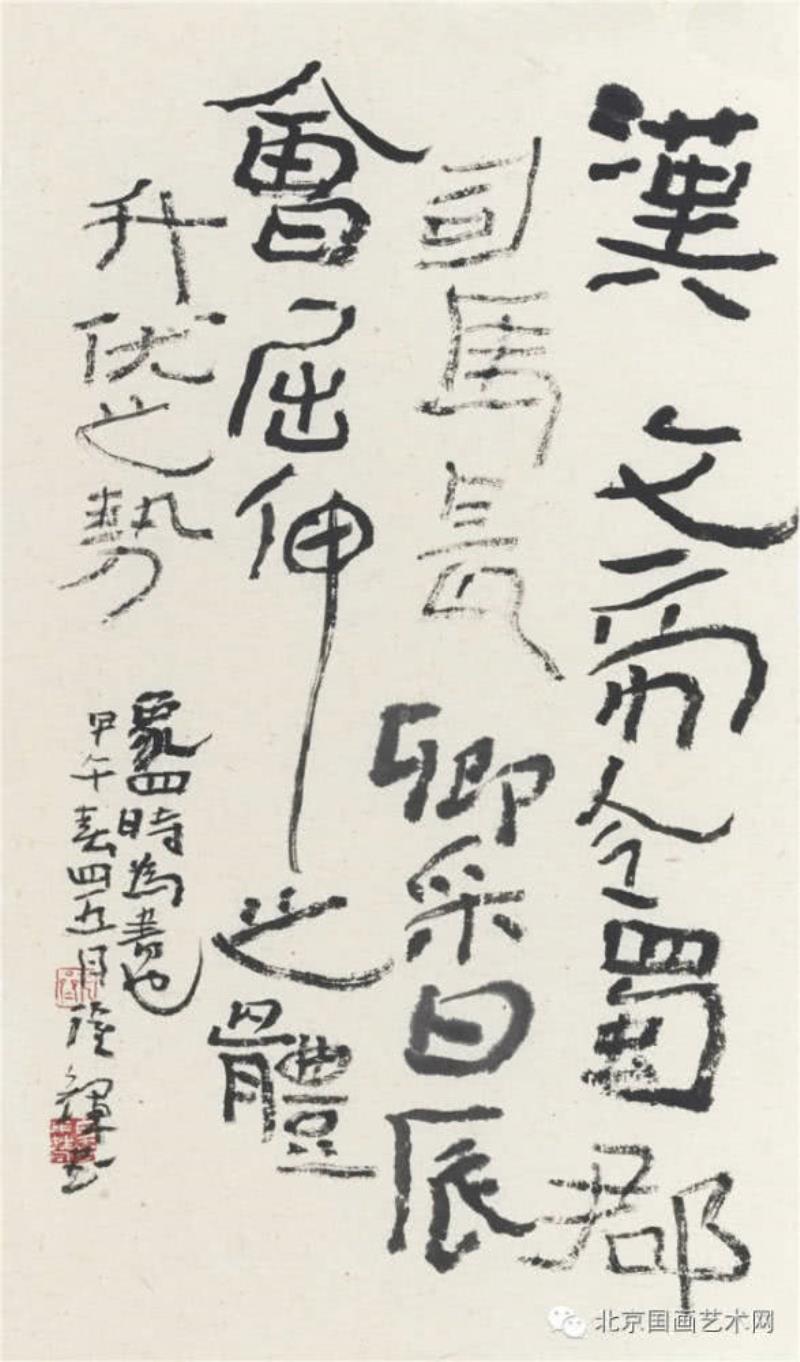 漢文帝令蜀郡
司馬長卿采日辰
會屈伸之體
升伏之勢
象四時為書也
甲午春四五月
北京国画艺术网